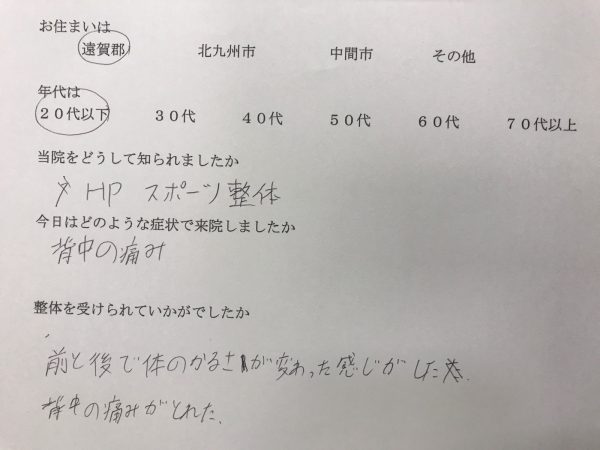 お住まいは
遠賀郡 北九州市 中間市 その他
年代は
20代以下 30代 40代 50代 60代 70代以上
当院をどうして知られましたか
HP スポーツ整体
今日はどのような症状で来院しましたか
背中の痛み
整体を受けられていかがでしたか
前と後で体のかるさが変わった感じがした。
背中の痛みがとれた。